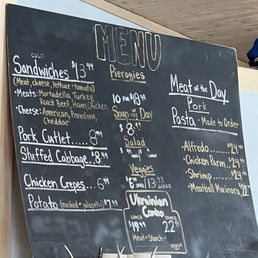 MENU
COLD
Sandwiches $13.99
(Meat, cheese, lettuce + tomato)
•Meats: Mortadella, Turkey
Roast Beef, Ham, Chicken
•Cheese: American, Provolone,
Cheddar
Pork Cutlet... 8.99
Stuffed Cabbage $8.99
Chicken Crepes... 6.99
Potato
Pierogies
10 FOR
Soup of the Day
$8
Salad
Veggies
Ukrainian
Combo
LUNCH DINNER
$19.99 22
Meat + Starch
Meat of the Day
Pork
Pasta - Made to Order
- Alfredo
- Chicken Parm
- Shrimp
- Meatball Marinara